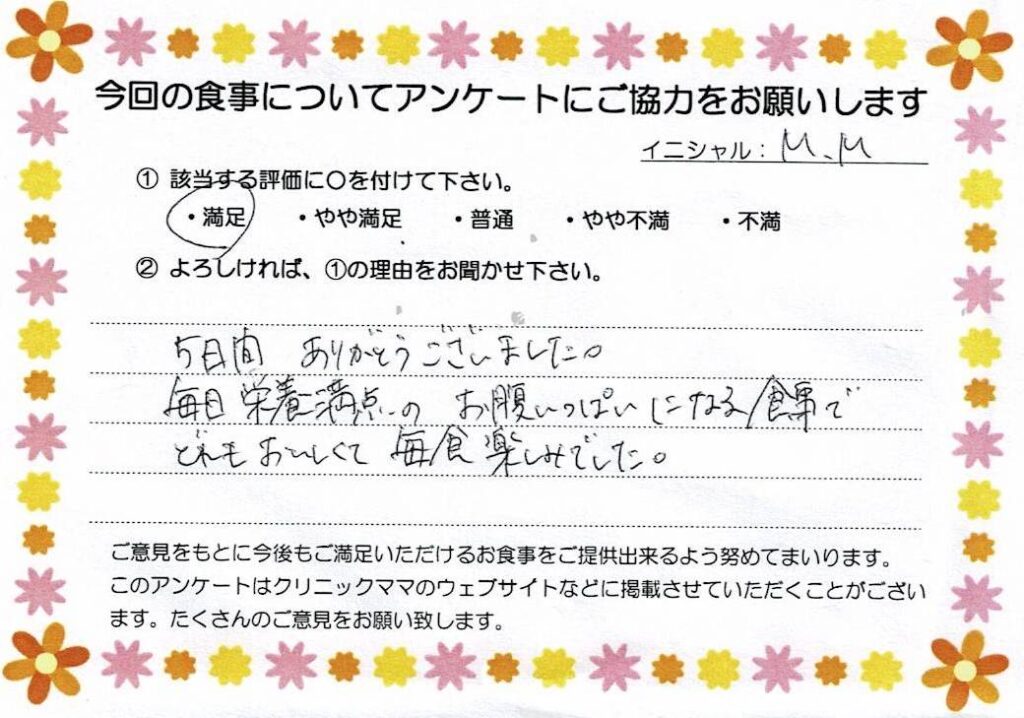 今回の食事についてアンケートにご協力をお願いします
イニシャル：M.M
① 該当する評価に〇を付けて下さい。
・満足 ・やや満足 ・普通 ・やや不満 ・不満
② よろしければ、①の理由をお聞かせ下さい。
5日間 ありがとうございました。
毎日 栄養満点の お腹いっぱいになる食事で
どれもおいしくて 毎食楽しみでした。
ご意見をもとに今後もご満足いただけるお食事をご提供出来るよう努めてまいります。
このアンケートはクリニックママのウェブサイトなどに掲載させていただくことがござい
ます。たくさんのご意見をお願い致します。